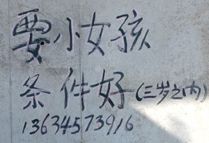 要小女孩
条件好(三岁之内)
13634573916